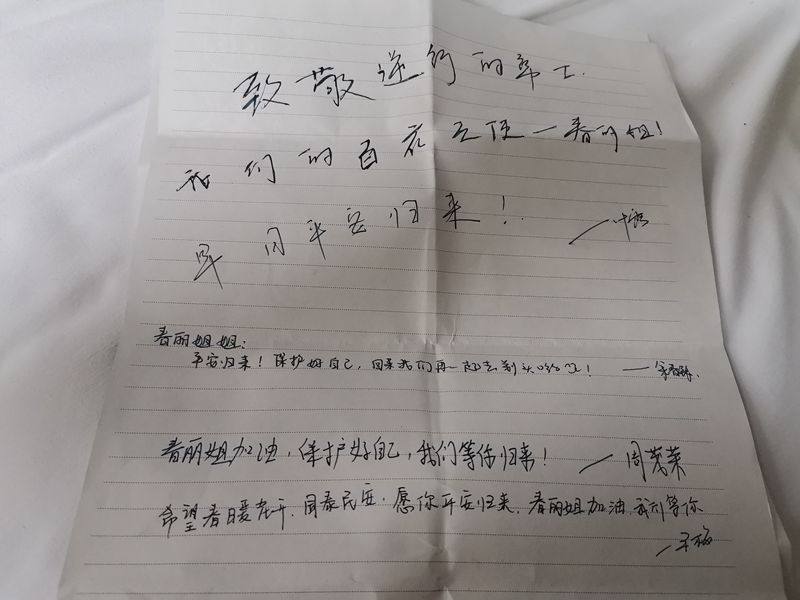 致敬逆行的率士.
我们的百花天使一春丽姐!
早日平安归来!
春丽姐姐:
平安归来!保护好自己,回来我们再一起去剃头哈哈!
春丽姐加油,保护好自己,我们等你归来! —周茂荣
希望春暖花开.国泰民安.愿你平安归来.春丽姐加油.我们等你